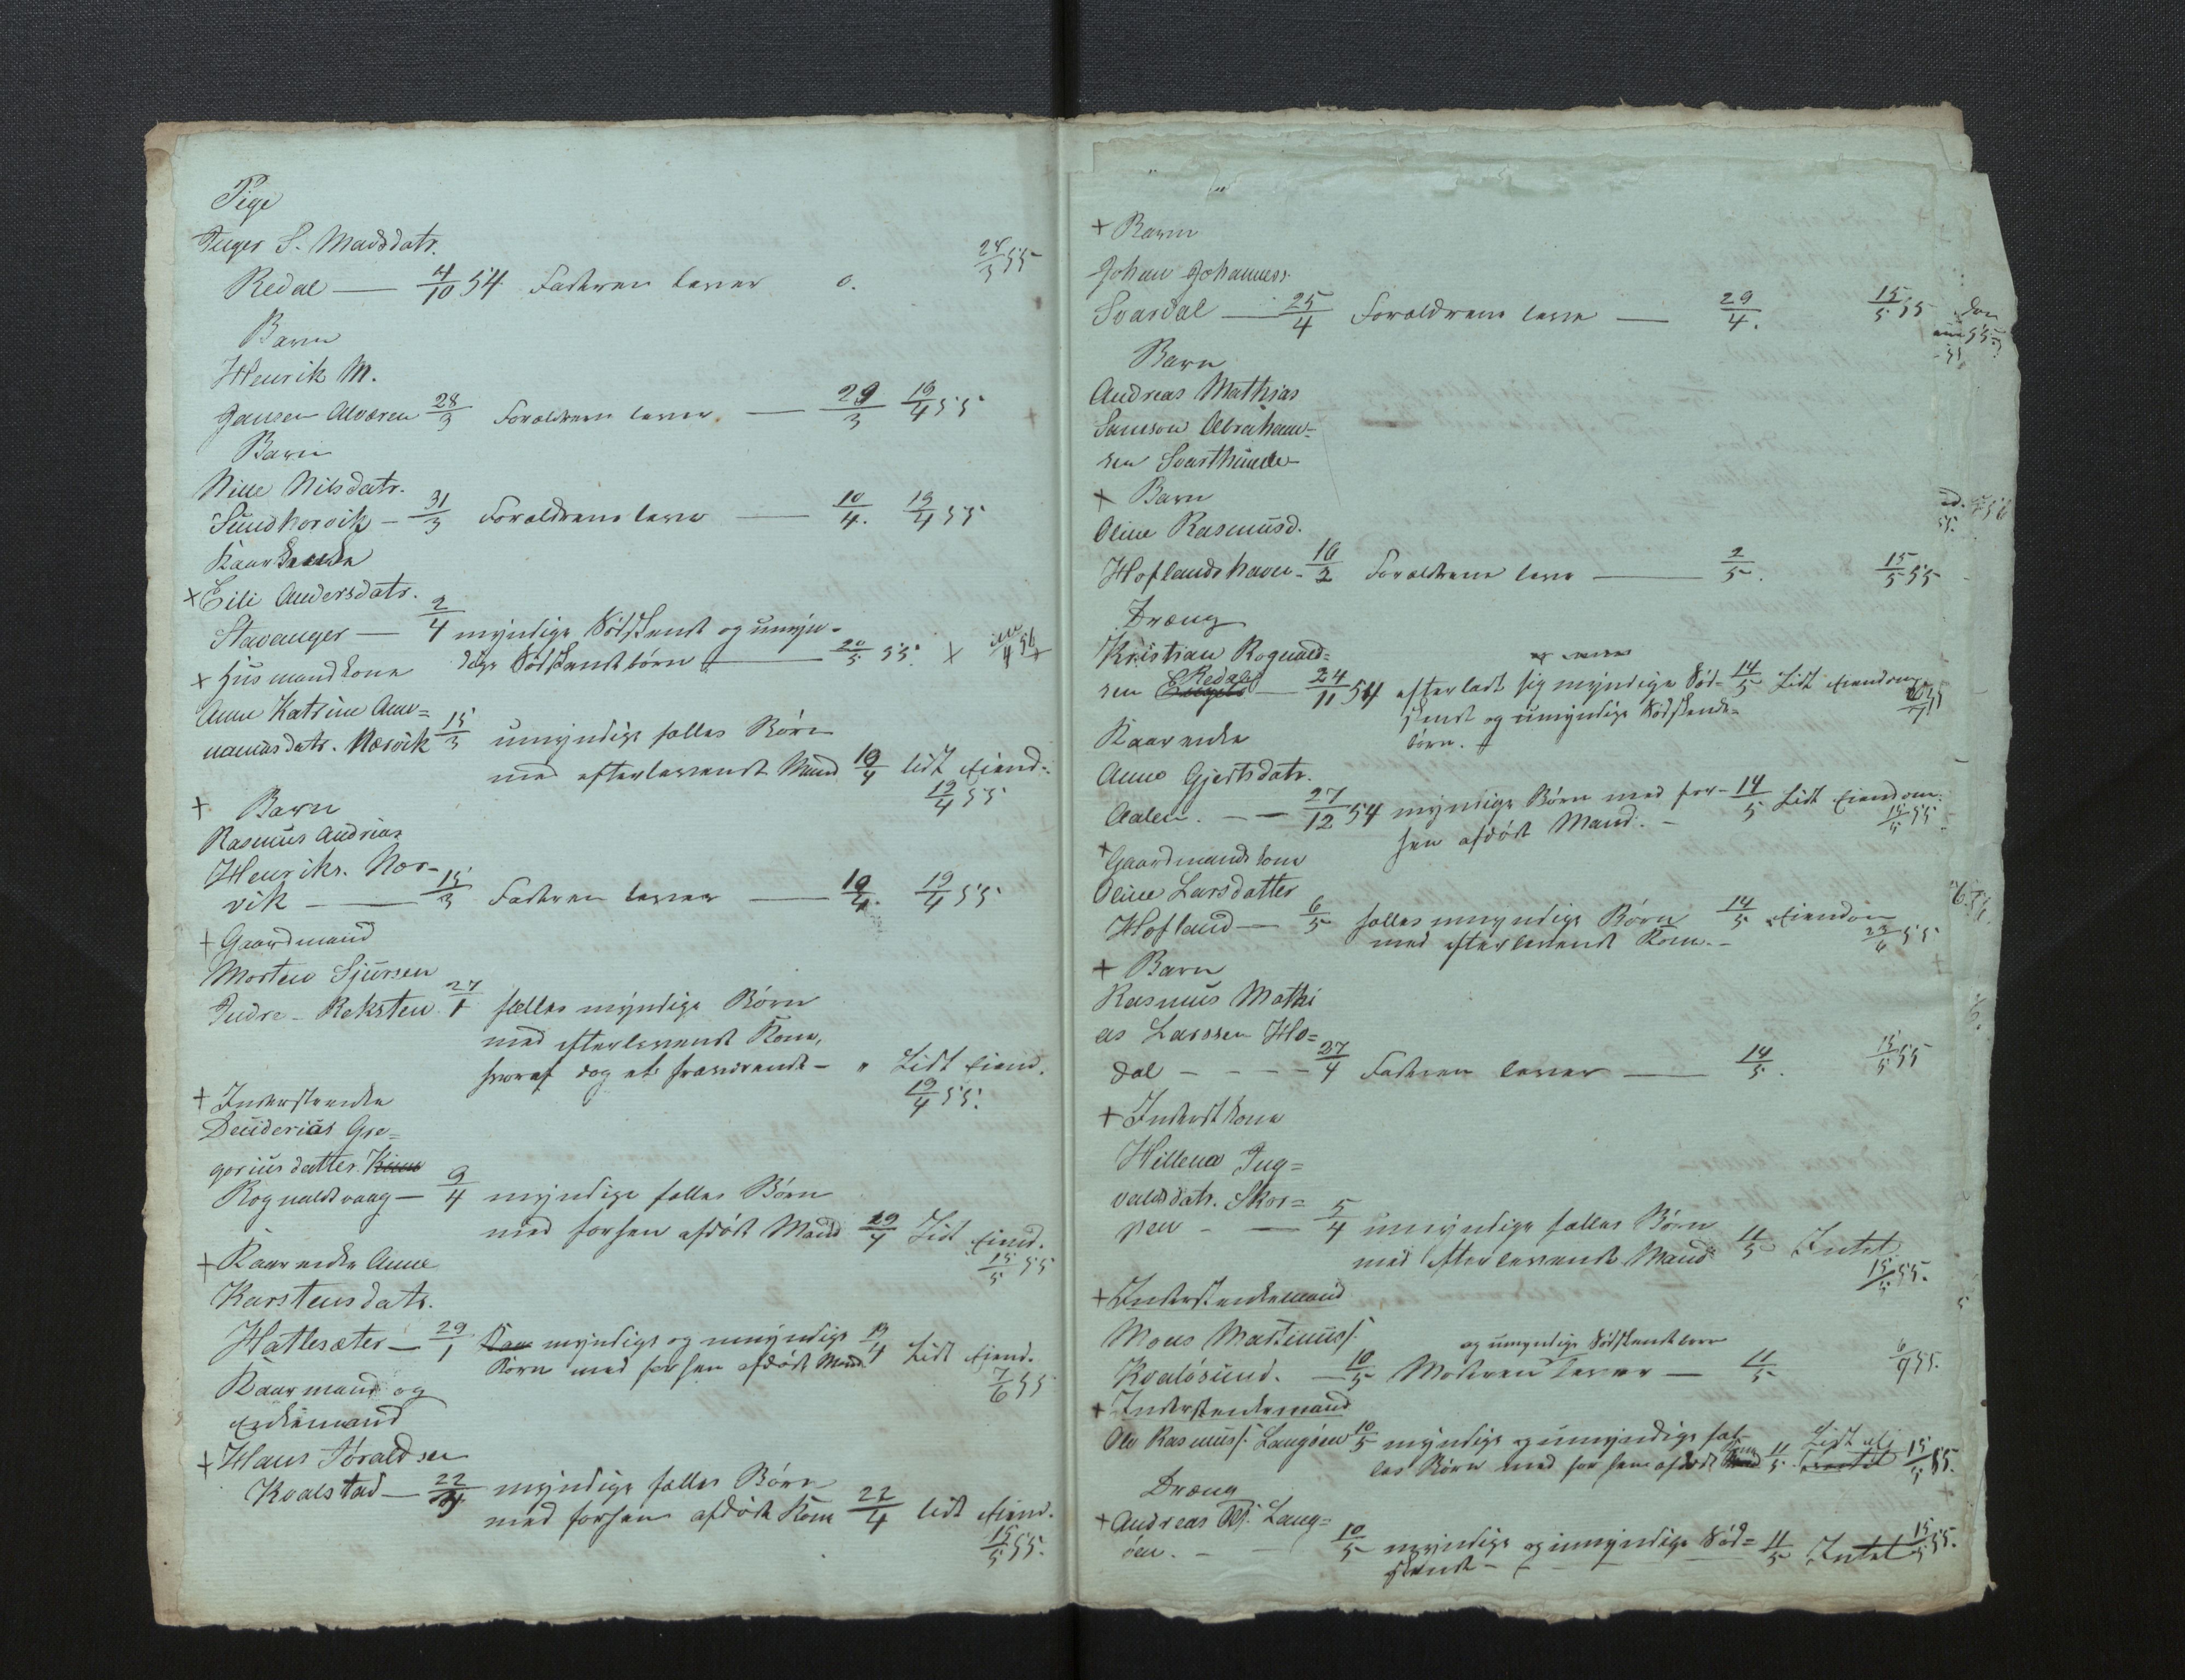 Pige
Inger S. Madsdatr.
Redal — 4/10 54 Faderen lever 0. 24/3 55
Barn
Henrik M.
Jansen Alværen 28/3 Forældrene lever — 29/3 19/4 55
Barn
Nille Nilsdatr.
Sundhorvik — 31/3 Forældrene leve — 10/4. 19/4 55
Kaarenke
+ Eili Andersdatr.
Stavanger — 2/4 myndige Sødskend og umyn-
dige Sødskendbørn — 20/5 55. +
+ Husmandkone
Anne Katrine Ane=
naniasdatr. Nærvik 15/3 umyndige fælles Børn
med efterlevende Mand 19/4 lidt Eiend.
19/4 55
+ Barn
Rasmus Andreas
Henriks. Nær-
vik — 15/3 Faderen lever — 19/4. 19/4 55
+ Gaardmand
Morten Sjursen
Indre-Reksten 27/1 fælles myndige Børn
med efterlevende Kone,
hvoraf dog et fraværende — " Lidt Eiend.
19/4 55.
+ Inderstenke
Deuderias Gre=
goriusdatter. Kinn
Rognaldsvaag — 9/4 myndige fælles Børn
med forhen afdøde Mand 29/4 Lidt Eiend.
15/5 55
+ Kaarenke Anne
Karstensdatr.
Hatlesæter — 29/1 myndige og umyndige 19/4 Lidt Eiend.
Børn med forhen afdøde Mand
7/6 55
Kaarmand og
Enkemand
+ Hans Joraldsen
Kvalstad — 22/4 myndige fælles Børn
med forhen afdøde Kone 22/4 lidt Eiend.
15/5 55.
+ Barn
Johan Johanness.
Svardal — 25/4 Forældrene leve — 29/4. 15/5 55
Barn
Andreas Mathias
Samson Abraham=
sen Svarthumle
+ Barn
Oline Rasmusd.
Hoflandshavn. 16/2 Forældrene leve — 2/5. 15/5 55
Dreng
Kristian Rognald=
sen Redal — 24/11 54 efterladt sig myndige Sød= 14/5 Lidt Eiendom
skend og umyndige Sødskende-
børn.
Kaarenke
Anne Gjertsdatr.
Aalen. — 27/12 54 myndige Børn med for- 14/5 Lidt Eiendom.
hen afdøde Mand. — 15/5 55
+ Gaardmandskone
Oline Larsdatter
Hofland — 6/5 fælles umyndige Børn 14/5 Eiendom
med efterlevende Kone. —
+ Barn
Rasmus Mathi
as Larssen Ho=
dal — 27/4 Faderen lever — 14/5. 15/5 55
+ Inderstkone
Hillena Ing=
valdsdatr. Skor=
pen — 5/4 umyndige fælles Børn
med efterlevende Mand 11/5 Intet
15/5 55.
+ Inderstenkemand
Mons Martinuss.
og umyndige Sødskendebørn
Kvaløsund. — 10/5 Moderen lever — 11/5 6/7 55.
+ Inderstenkemand
Ole Rasmuss. Langøen 10/5 myndige og umyndige fæl-
les Børn med forhen afdøde Kone 11/5 Lidt 15/5 55.
Dreng
+ Andreas Ols. Lang=
øen. — 10/5 myndige og umyndige Sød= 11/5 Intet 15/5 55.
skend —